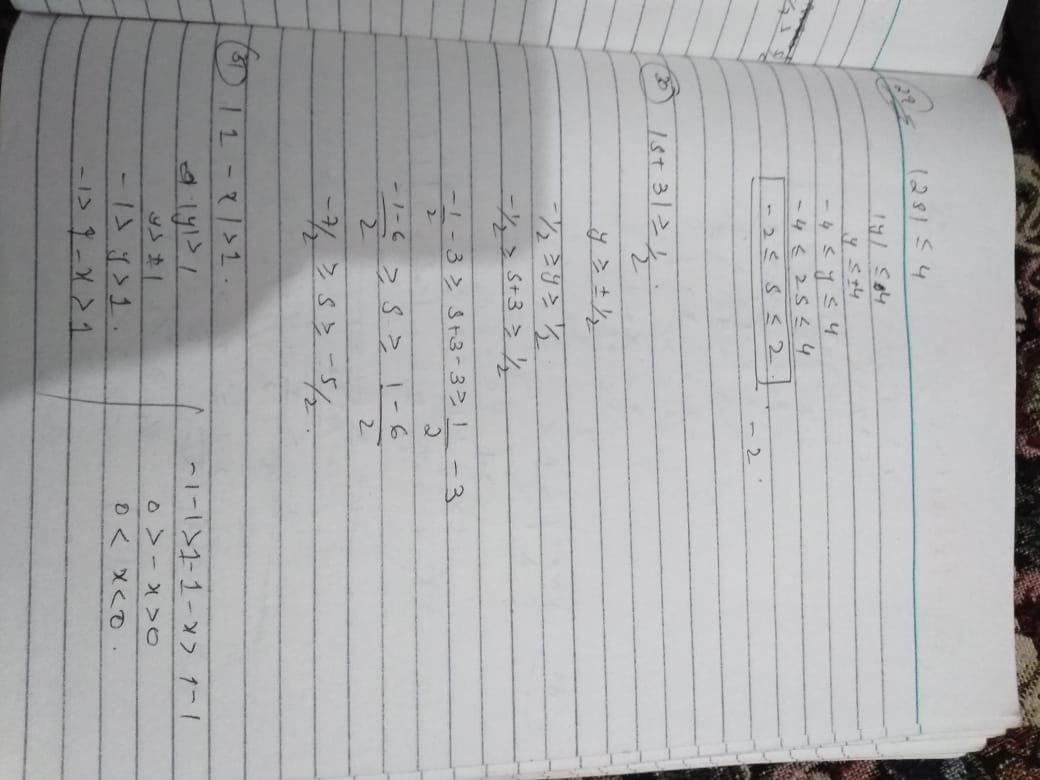 29
|2s| ≤ 4
|y| ≤ 4
y ≤ ±4
-4 ≤ y ≤ 4
-4 ≤ 2s ≤ 4
-2 ≤ s ≤ 2.
-2.
30 |s+3| ≥ 1/2.
y ≥ ± 1/2
-1/2 ≥ y ≥ 1/2.
-1/2 ≥ s+3 ≥ 1/2
-1/2 - 3 ≥ s+3-3 ≥ 1/2 - 3
-1-6/2 ≥ s ≥ 1-6/2
-7/2 ≥ s ≥ -5/2.
31 |1 - x| > 1.
|y| > 1
y > ±1
-1 > y > 1.
-1 > 1 - x > 1
-1-1 > 1-1-x > 1-1
0 > -x > 0
0 < x < 0.